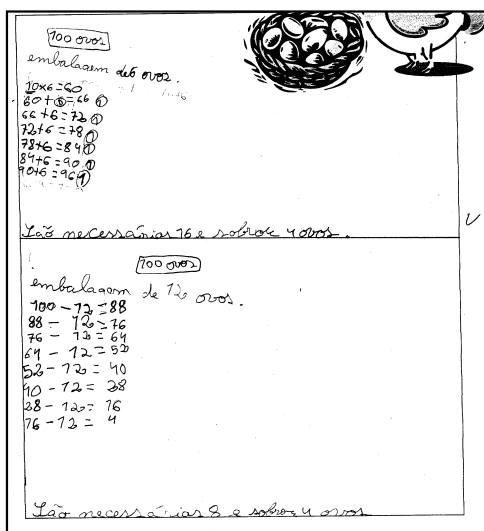 100 ovos
embalagem de 6 ovos.
10x6=60
60+6=66 1
66+6=72 1
72+6=78 1
78+6=84 1
84+6=90 1
90+6=96 1
São necessárias 16 e sobrou 4 ovos.
100 ovos
embalagem de 12 ovos.
100-12=88
88-12=76
76-12=64
64-12=52
52-12=40
40-12=28
28-12=16
16-12=4
São necessárias 8 e sobrou 4 ovos